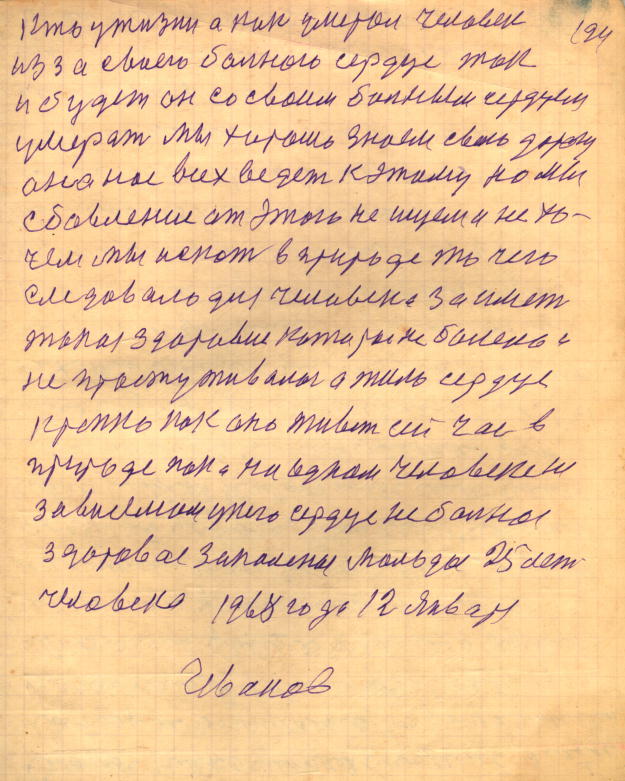 194
Кто у жизни а как умерал человек
из за своего балного сердце так
и будет он со своем балным сердцем
умерат мы хорошо знаем свою дорогу
она нас всех ведет к этому но мы
сбавление от этого не ищем и не хо-
чем мы искат в природе то чего
следовало для человека заимет
такое здоровие каторое не болело и
не простуживалос а жило сердце
крепко как оно живет сей час в
природе пока на одном человеке не
зависемом у него сердце не балное
здоровае закаленае молодое 25 лет
человека 1968 года 12 Январ
Иванов